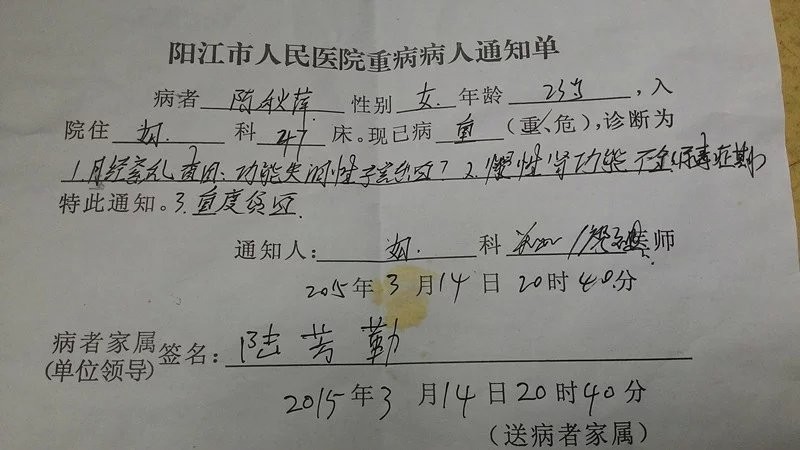 阳江市人民医院重病病人通知单
病者 陈秋萍 性别 女. 年龄 23岁 , 入
院住 妇. 科 47 床。现已病 重 (重、危), 诊断为
1.月经紊乱查因: 功能失调性子宫出血? 2.慢性肾功能不全(尿毒症期)
特此通知。3.重度贫血.
通知人: 妇. 科 医师
2015年 3 月 14 日 20 时 40 分
病者家属
(单位领导) 签名: 陆芳勤
2015 年 3 月 14 日 20 时 40 分
(送病者家属)